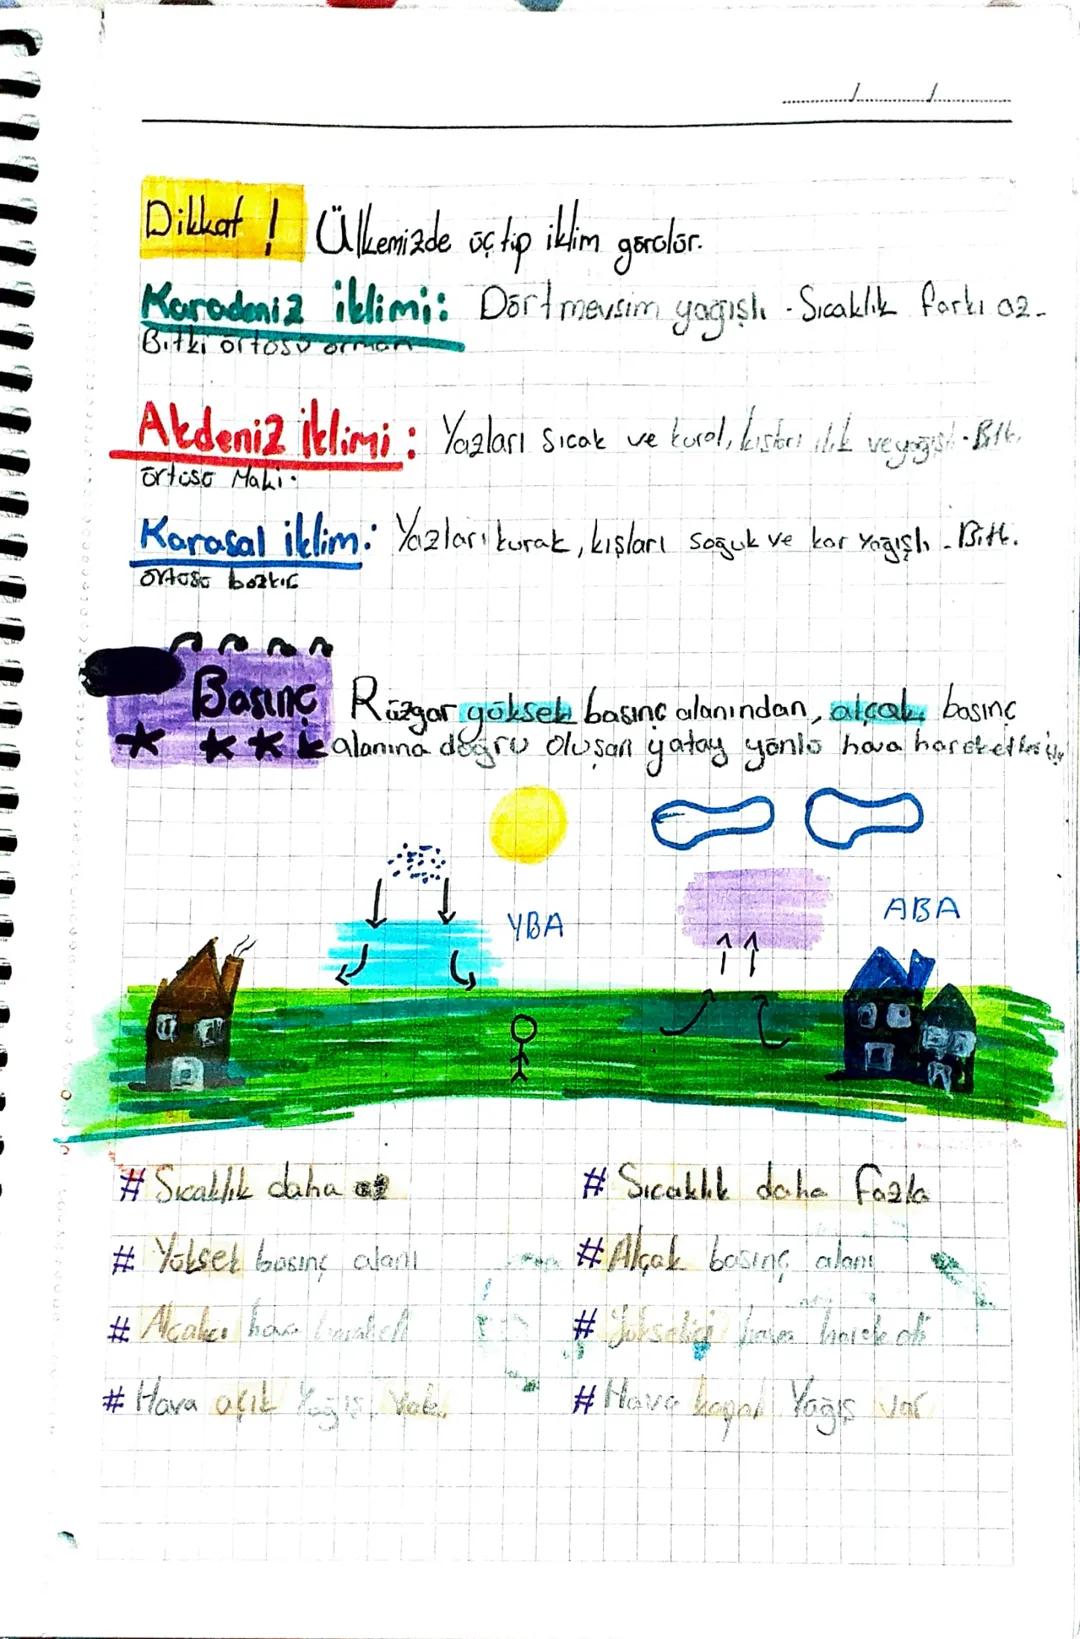 Dikkat ! Ülkemizde üç tip iklim görülür.
Karadeniz iklimi: Dört mevsim yağışlı - Sıcaklık farkı az -
Bitki örtüsü orman
Akdeniz İklimi : Yazları sıcak ve kurak, kışları ılık ve yağışlı - Bitk.
örtüsü Maki.
Karasal iklim: Yazları kurak, kışları soğuk ve kar yağışlı - Bitk.
örtüsü bozkır
Basınç Rüzgar yüksek basınç alanından, alçak basınç
alanına doğru oluşan yatay yönlü hava hareketleri
YBA
ABA
# Sıcaklık daha az
# Sıcaklık daha fazla
# Yüksek basınç alanı
# Alçak basınç alanı
# Alçalıcı hava hareketi
# Yükselici hava hareketi
# Hava açık Yağış Yok.
# Hava kapalı Yağış var